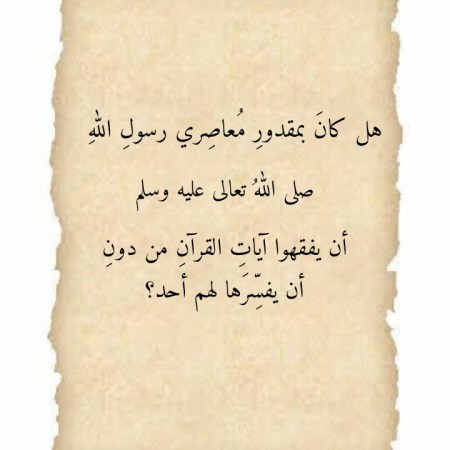 هل كانَ بمقدورِ مُعاصِري رسولِ اللهِ
صلى اللهُ تعالى عليه وسلم
أن يفقهوا آياتِ القرآنِ من دونِ
أن يفسِّرَها لهم أحد؟